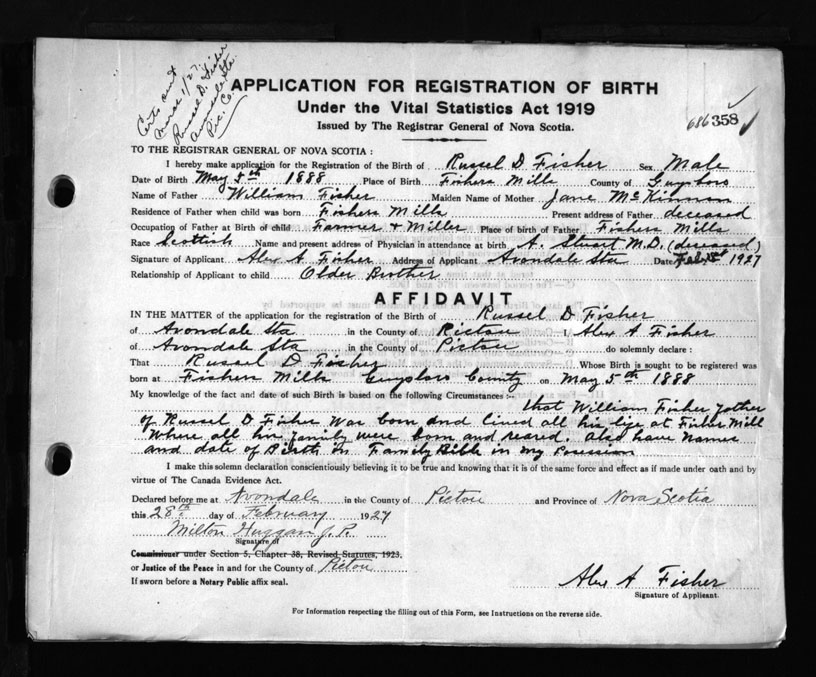 Certs sent
Mar. 1/27
Russel D. Fisher
Avondale Sta
Pic. Co.
APPLICATION FOR REGISTRATION OF BIRTH
Under the Vital Statistics Act 1919
Issued by The Registrar General of Nova Scotia.
686358
TO THE REGISTRAR GENERAL OF NOVA SCOTIA :
I hereby make application for the Registration of the Birth of Russel D Fisher Sex Male
Date of Birth May 5th 1888 Place of Birth Fishers Mills County of Guysboro
Name of Father William Fisher Maiden Name of Mother Jane McKinnon
Residence of Father when child was born Fishers Mills Present address of Father deceased
Occupation of Father at Birth of child Farmer & Miller Place of birth of Father Fishers Mills
Race Scottish Name and present address of Physician in attendance at birth A. Stuart M.D. (deceased)
Signature of Applicant Alex A. Fisher Address of Applicant Avondale Sta Date Feb 28th 1927
Relationship of Applicant to child Older Brother
AFFIDAVIT
IN THE MATTER of the application for the registration of the Birth of Russel D Fisher
of Avondale Sta in the County of Pictou I, Alex A Fisher
of Avondale Sta in the County of Pictou do solemnly declare :
That Russel D Fisher Whose Birth is sought to be registered was
born at Fishers Mills Guysboro County on May 5th 1888
My knowledge of the fact and date of such Birth is based on the following Circumstances :-
that William Fisher father
of Russel D Fisher was born and lived all his life at Fisher Mill
Where all his family were born and reared. Also have Names
and date of Birth in Family Bible in my Posession
I make this solemn declaration conscientiously believing it to be true and knowing that it is of the same force and effect as if made under oath and by
virtue of The Canada Evidence Act.
Declared before me at Avondale in the County of Pictou and Province of Nova Scotia
this 28th day of February 1927
Milton Huggan J.P.
Signature of
Commissioner under Section 5, Chapter 38, Revised Statutes, 1923,
or Justice of the Peace in and for the County of Pictou
If sworn before a Notary Public affix seal.
Alex A Fisher
Signature of Applicant.
For Information respecting the filling out of this Form, see Instructions on the reverse side.